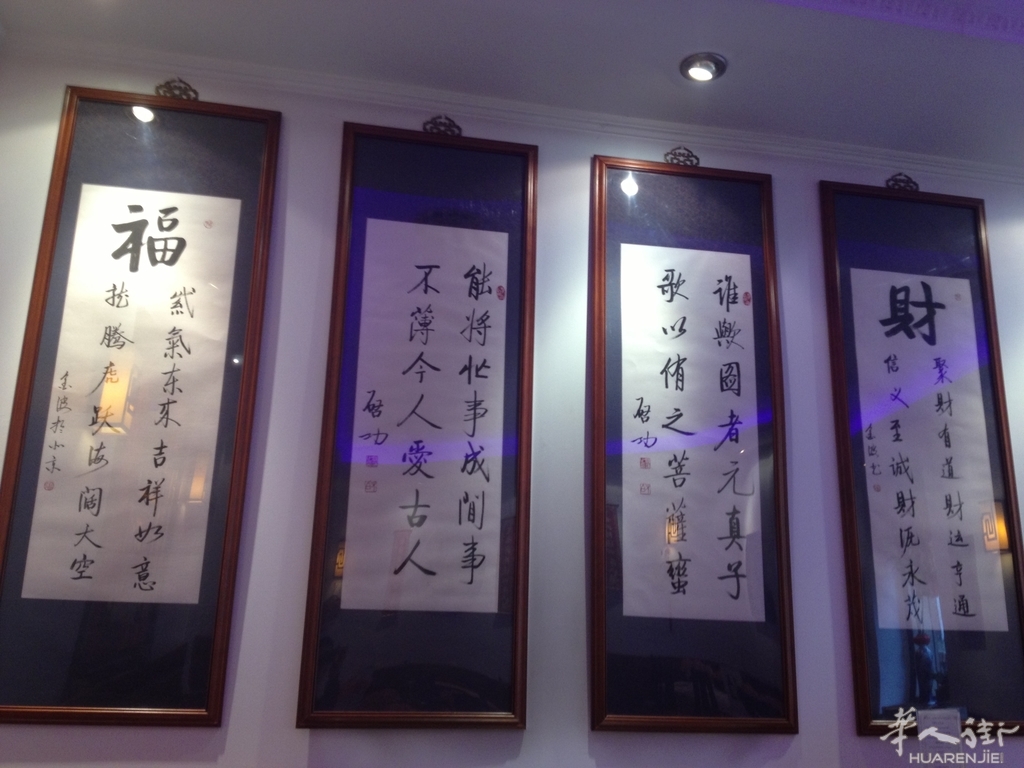 福
紫氣东来吉祥如意
龙腾虎跃海阔天空
能将忙事成閒事
不薄今人愛古人
啓功
谁與圖者元真子
歌以侑之菩薩蠻
啓功
財
聚財有道財运亨通
信义至诚財源永茂
華人街
HUARENJIE